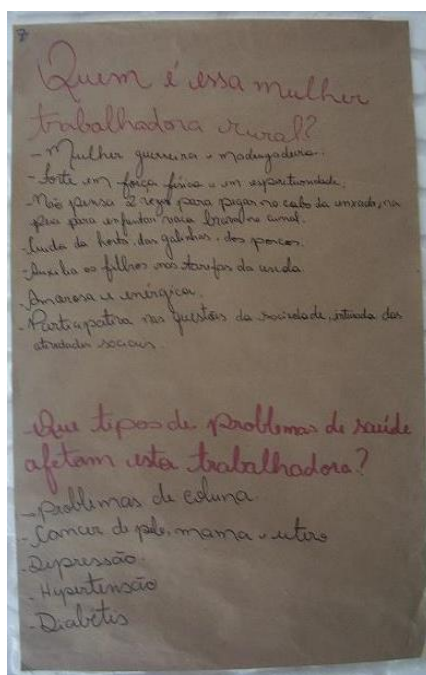 7
Quem é essa mulher
trabalhadora rural?
- Mulher guerreira e madrugadeira.
- Forte em força física e em espiritualidade.
- Não pensa 2 vezes para pegar no cabo da enxada, na
para enfrentar vaca brava no curral.
- Cuida da horta, das galinhas, dos porcos.
- Auxilia os filhos nas tarefas da escola.
- Amorosa e enérgica.
- Participativa nas questões da sociedade, das
atividades sociais.
- Que tipos de problemas de saúde
afetam esta trabalhadora?
- Problemas de coluna
- Câncer de pele, mama e útero
- Depressão
- Hipertensão
- Diabétis